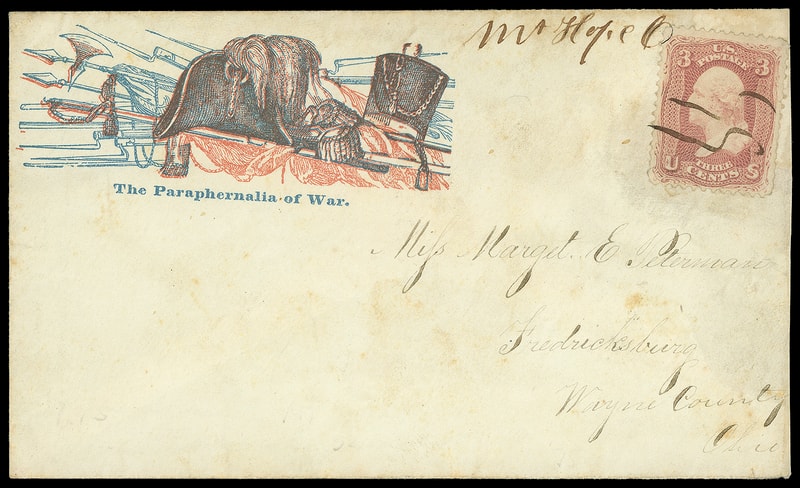 Mt Hope O
U.S.
POSTAGE
3 3
THREE
U CENTS S
The Paraphernalia of War.
Miss Marget. E. Peterman
Fredricksburg
Wayne County
Ohio